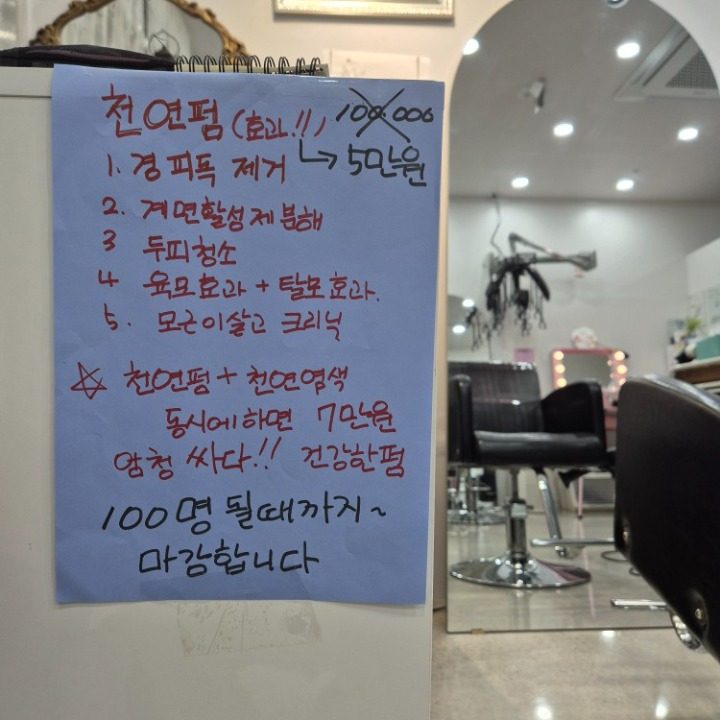 천연펌 (효과!!) 100.000
→ 5만원
1. 경피독 제거
2. 계면활성제분해
3 두피청소
4 육모효과 + 탈모효과.
5. 모근이살고 크리닉
☆ 천연펌 + 천연염색
동시에하면 7만원
암청 싸다!! 건강한펌
100명 될때까지~
마감합니다